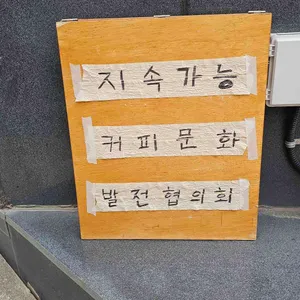 지속가능
커피문화
발전협의회